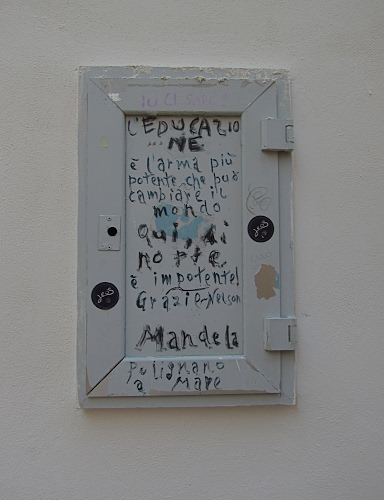 L'EDUCAZIO
... NE
è l'arma più
potente che può
cambiare il
mondo
qui,
è impotente!
Grazie-Nelson
Mandela
Polignano
a Mare